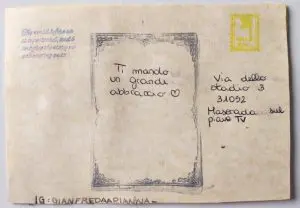 Ti mando
un grande
abbraccio ♡
Via dello
stadio 3
31052
Maserada sul
piave TV
IG: GIANFREDAARIANNA_